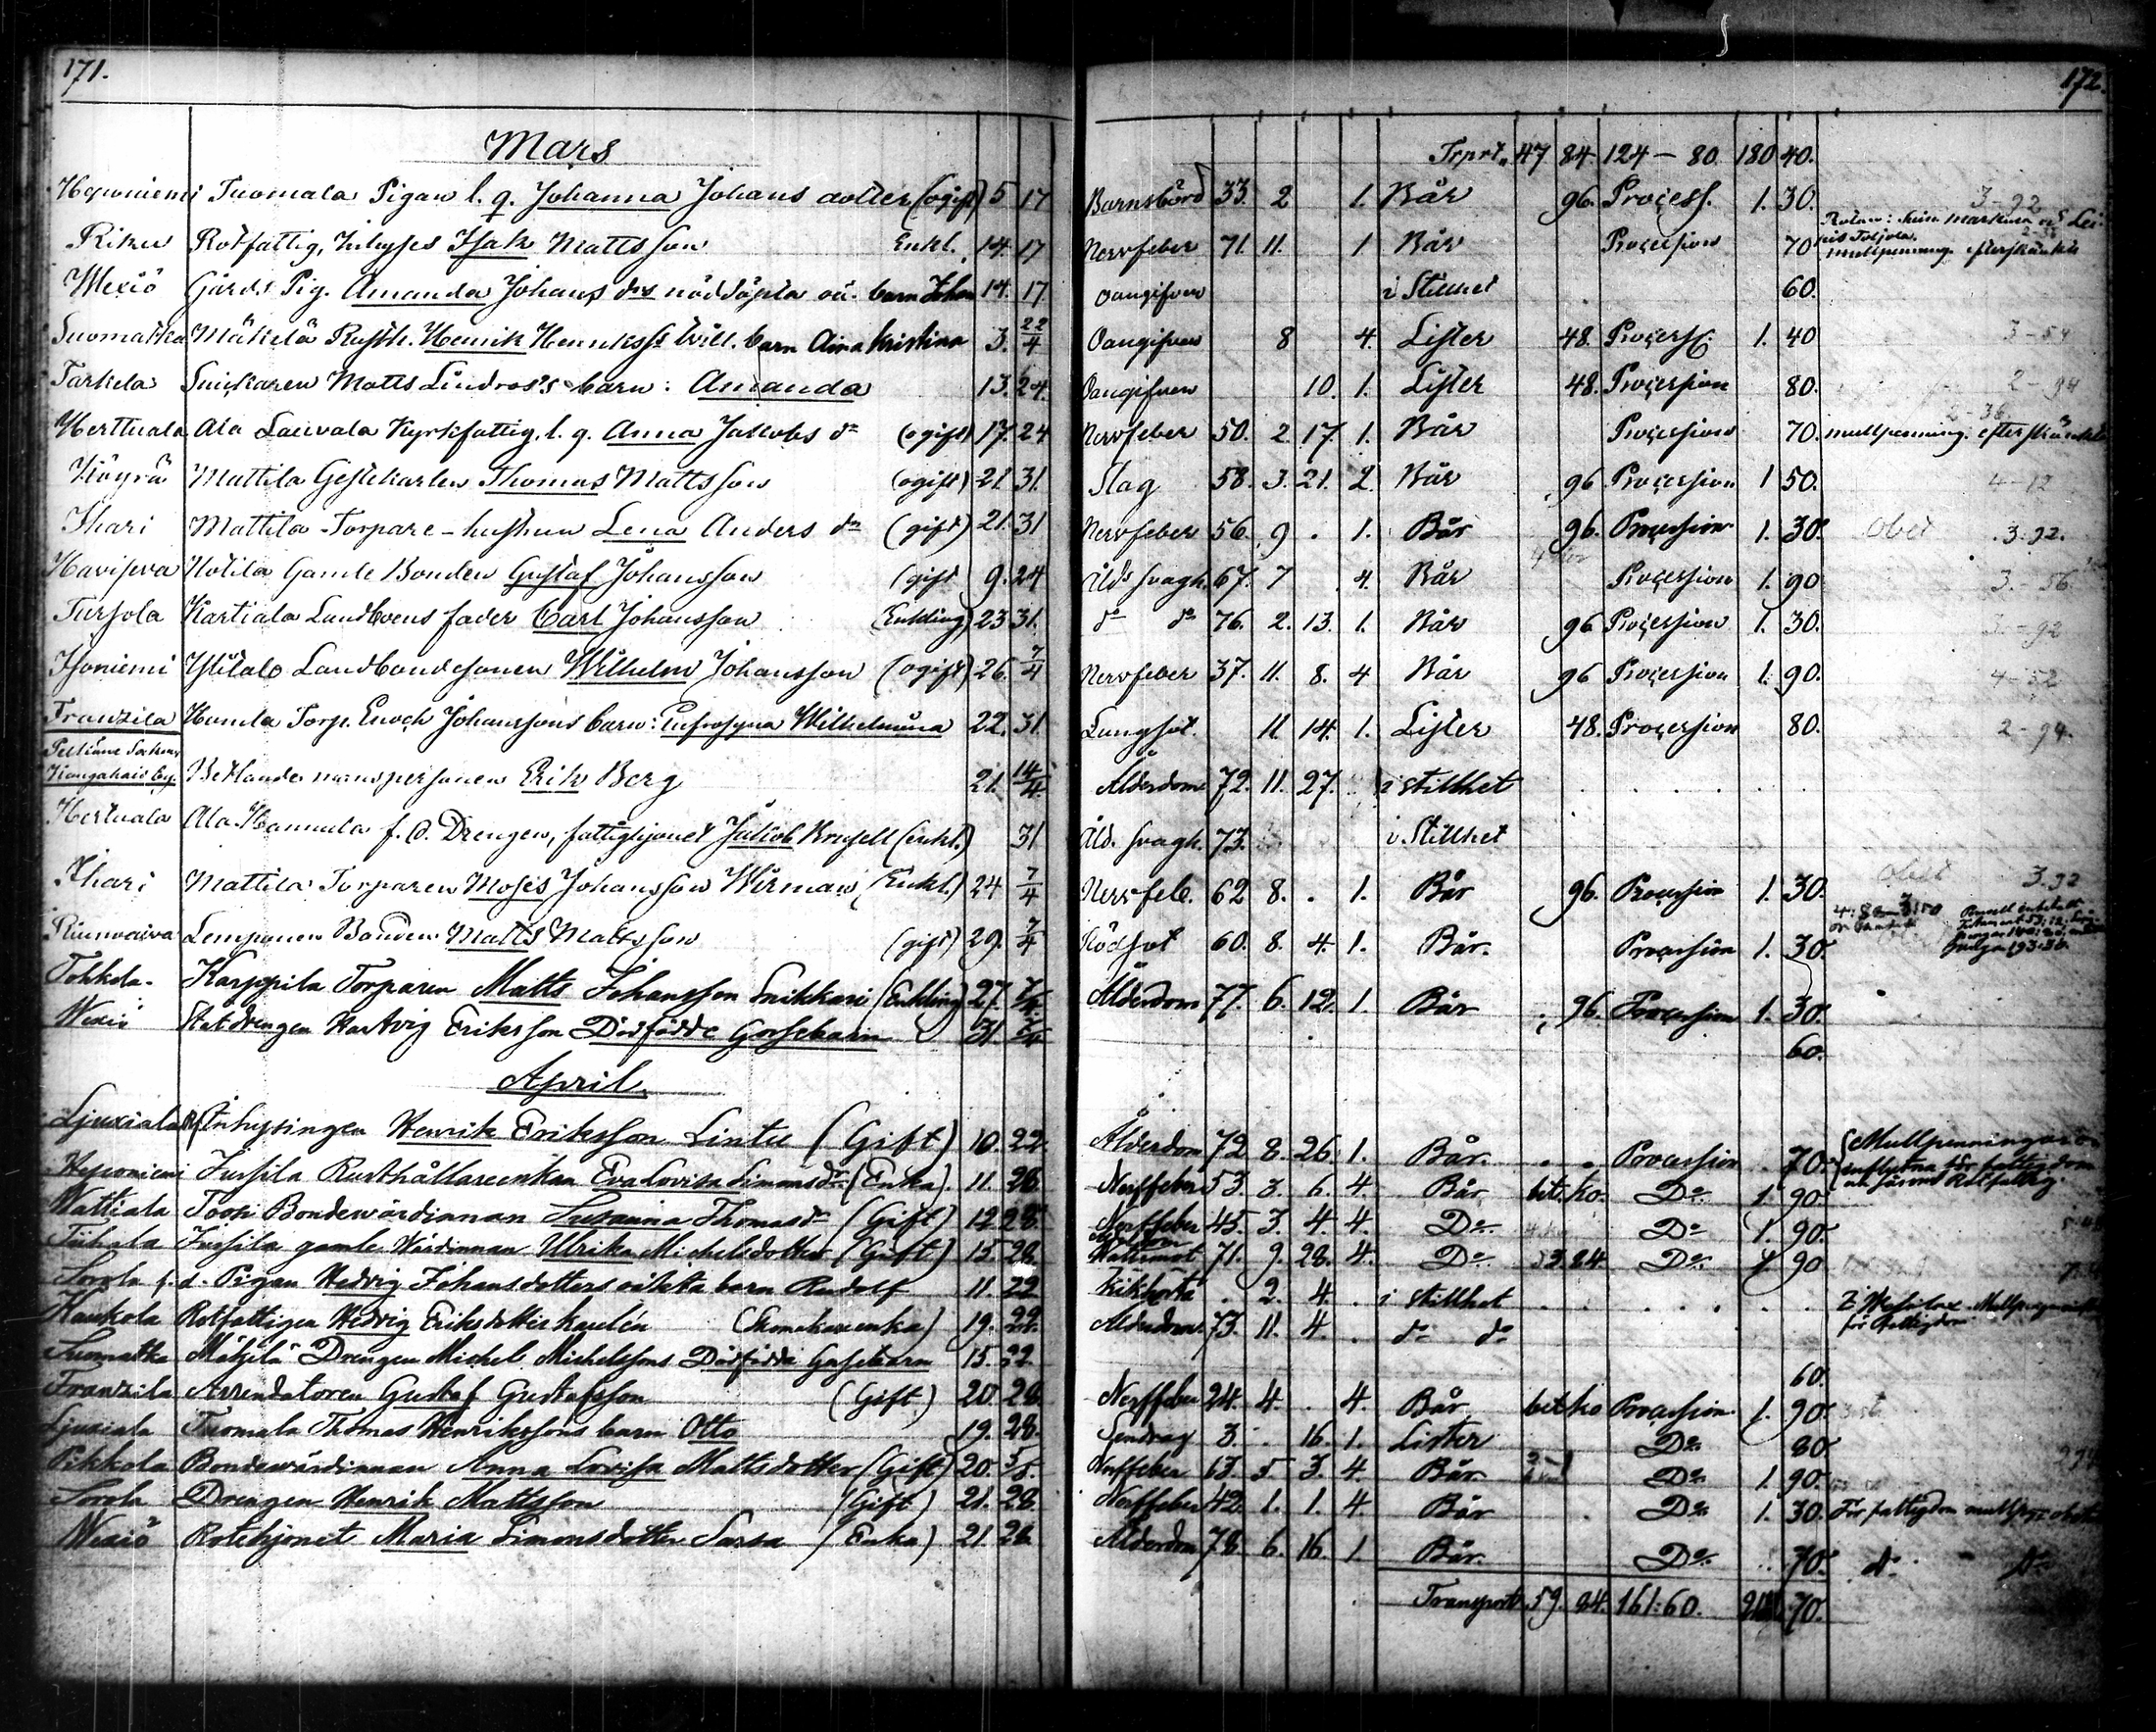 171. 172.
Mars
Trprt. 47 84 124 – 80 180 40.
Heponiemi Tuomala Pigan l. q. Johanna Johans dotter (ogift) 5 17 Barnsbörd 33. 2 1. Bår 96. Processs. 1. 30. 3-92
Riku Rotfattig, Inhyses Isak Mattsson Enkl. 14. 17 Nervfeber 71. 11. 1 Bår Procession 70 mullpenning efterskänkts
Wexiö Gårds Pig. Amanda Johans drs nöddöpta oä. barn Johan 14. 17. Oangifven i Stillhet 60.
Suomatka Mäkelä Rusth. Henrik Henrikss barn Aina Kristina 3. 22/4 Oangifven 8 4. Lister 48. Process. 1. 40 3-54
Tarkela Snickaren Matts Lindros's barn: Amanda 13. 24. Oangifven 10. 1. Lister 48. Procession 80. 2-94
Herttuala Ala Lauvala Kyrkfattig. l. q. Anna Jakobs dr (ogift) 17. 24 Nervfeber 50. 2. 17. 1. Bår Procession 70. mullpenning. efterskänkt
Köyrä Mattila Gestekarlen Thomas Mattsson (ogift) 21. 31. Slag 58. 3. 21. 2. Bår 96 Procession 1 50. 4-12
Ihari Mattila Torpare-hustrun Lena Anders dr (gift) 21. 31 Nervfeber 56. 9 . 1. Bår 96. Procession 1. 30. obet 3.92.
Havisova Uotila Gamle Bonden Gustaf Johansson (gift 9. 24 Åld. svagh. 67. 7 4. Bår Procession 1. 90 3.-56.
Tursola Kartiala Landbvens fader Carl Johansson (Enkling) 23 31. do do 76. 2. 13. 1. Bår 96 Procession 1. 30. 3.-92
Isoniemi Ylitalo Landbondesonen Wilhelm Johansson (ogift) 26. 7/4 Nervfeber 37. 11. 8. 4 Bår 96 Procession 1. 90. 4-52
Franzila Humla Torp. Enoch Johanssons barn: Eufrosyna Wilhelmina 22. 31. Lungsot. 11 14. 1. Lister 48. Procession 80. 2-94.
Kiangahais by. Betlande manspersonen Erik Berg 21. 14/4 Ålderdom 72. 11. 27. i stillhet
Hertuala Ala-Hannula f. d. Drengen, fattighjonet Jakob Krusell (enkl.) 31 Åld. svagh. 73. i Stillhet
Ihari Mattila Torparen Moses Johansson Wirman (Enkl.) 24 7/4 Nervfeb. 62 8. . 1. Bår 96. Procession 1. 30. obet 3.92
Riunvaiva Lemponen Bonden Matts Mattsson (gift) 29. 7/4 Rödsot 60. 8. 4. 1. Bår. Procession 1. 30.
Tokkola. Karppila Torparen Matts Johansson Snikkari (Enkling) 27. 7/4 Ålderdom 77. 6. 12. 1. Bår 96. Procession 1. 30.
Wexiö Statdrengen Hartvig Eriksson Dödfödde Gossebarn 31. 7/4 60.
April.
Ljuxiala Inhysingen Henrik Eriksson Lintu (Gift) 10. 22. Ålderdom 72 8. 26. 1. Bår. Procession 70. Mullpenningar
Heponiemi Jussila Rusthållareenkan Eva Lovisa Simonsdr (Enka). 11. 28. Nerffeber 53. 3. 6. 4. Bår bet. ko. Do 1. 90
Wattiala Tooki Bondewärdinnan Susanna Thomasdr (Gift) 12 28. Nerffeber 45. 3. 4. 4 Do. Do 1. 90.
Tiihala Jussila gamle Wärdinnan Ulrika Michelsdotter (Gift) 15. 28. Wattusot 71. 9. 28. 4. Do. 53 84. Do. 1 90
Sorola f. d. Pigan Hedvig Johansdotters oäkta barn Rudolf 11. 22 Kikhosta . 2. 4. i stillhet
Kaukola Rotfattigen Hedvig Eriksdotter Kaulén (Skomakarenka) 19. 22. Ålderdom. 73. 11. 4. do do för fattigdom
Suomatka Mäkilä Drengen Michel Michelssons Dödfödde Gossebarn 15. 22. 60.
Franzila Arrendatoren Gustaf Gustafsson (Gift) 20. 28. Nerffeber 24. 4. . 4. Bår bet ko Procession 1. 90.
Ljuxiala Tuomala Thomas Henrikssons barn Otto 19. 28. Sendrag 3. . 16. 1. Lister Do 80.
Pikkola Bondewärdinnan Anna Lovisa Mattsdotter (Gift) 20. 5/5. Nerffeber 63. 5. 3. 4. Bår Do 1. 90.
Sorola Drengen Henrik Mattsson (Gift) 21. 28. Nerffeber 42. 1. 1. 4 Bår Do 1. 30. För fattigdom
Wexiö Rotehjonet Maria Simonsdotter Sassa (Enka) 21. 28. Ålderdom 78. 6. 16. 1. Bår. Do. 70. do Do
Transport 59. 84. 161:60. 70.